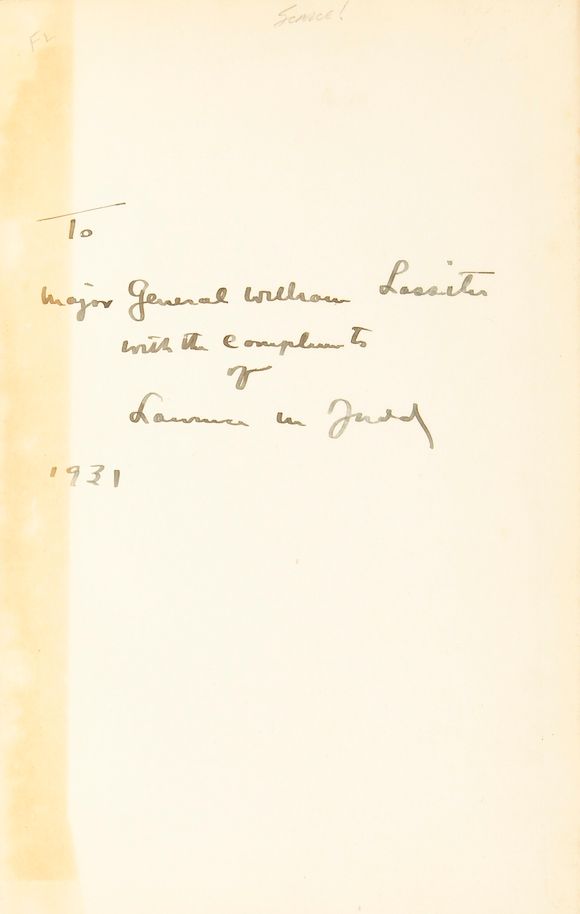 Scarce!
F2
To
Major General William Lassiter
with the compliments
of
Lawrence M Judd
1931